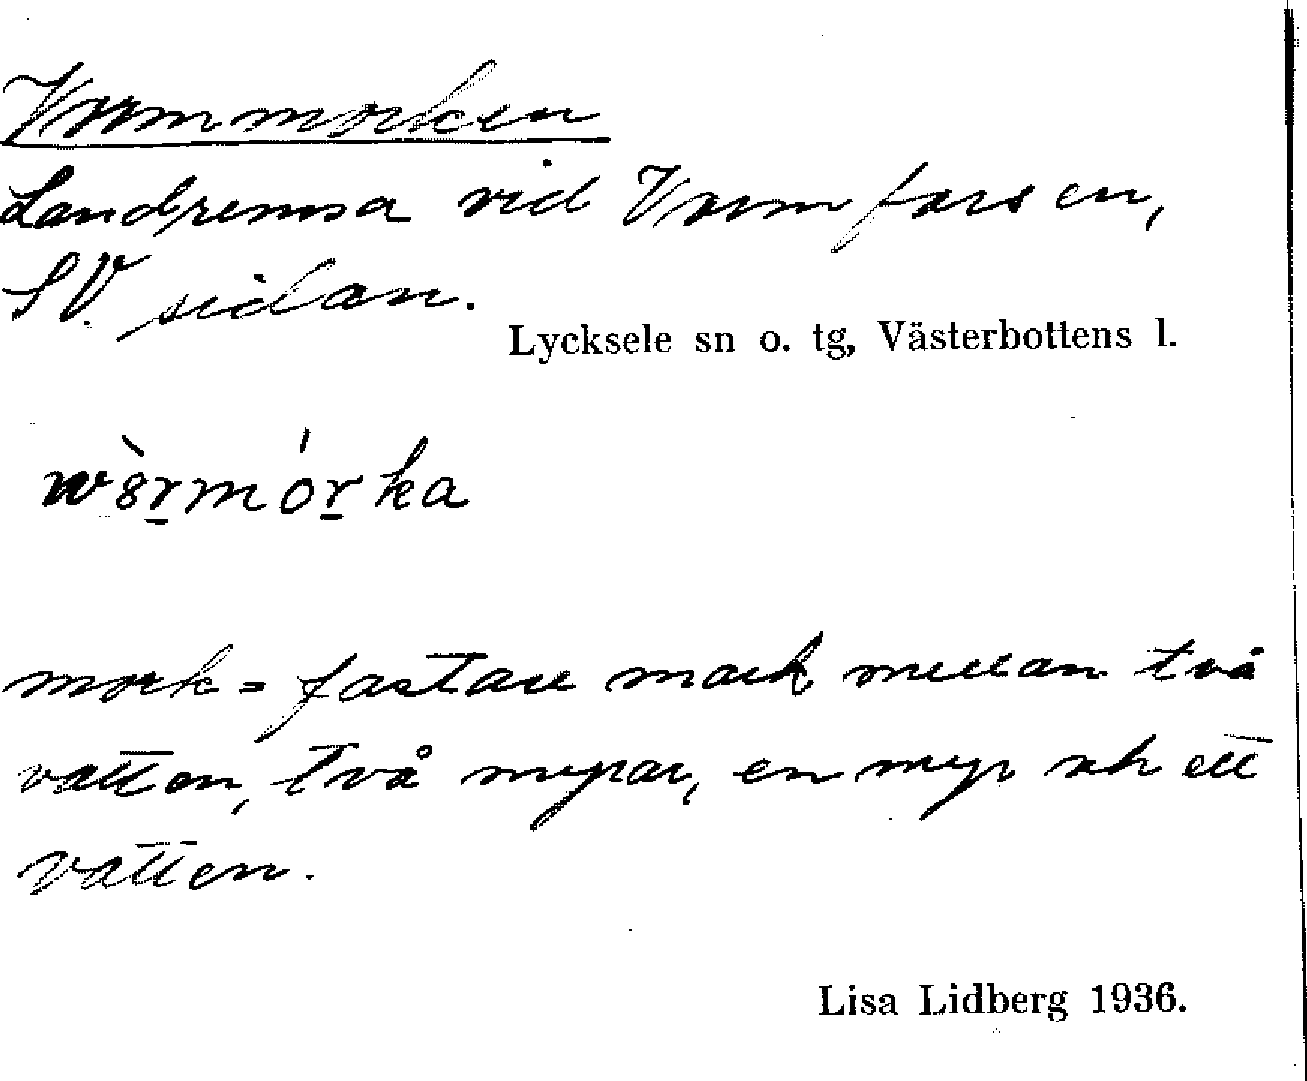 Vormmorken
Landremsa vid Vormforsen,
SV. sidan.
Lycksele sn o. tg, Västerbottens l.
w8̀ṟmóṟka
mork = fastare mark mellan två
vatten, två myrar, en myr och ett
vatten.
Lisa Lidberg 1936.